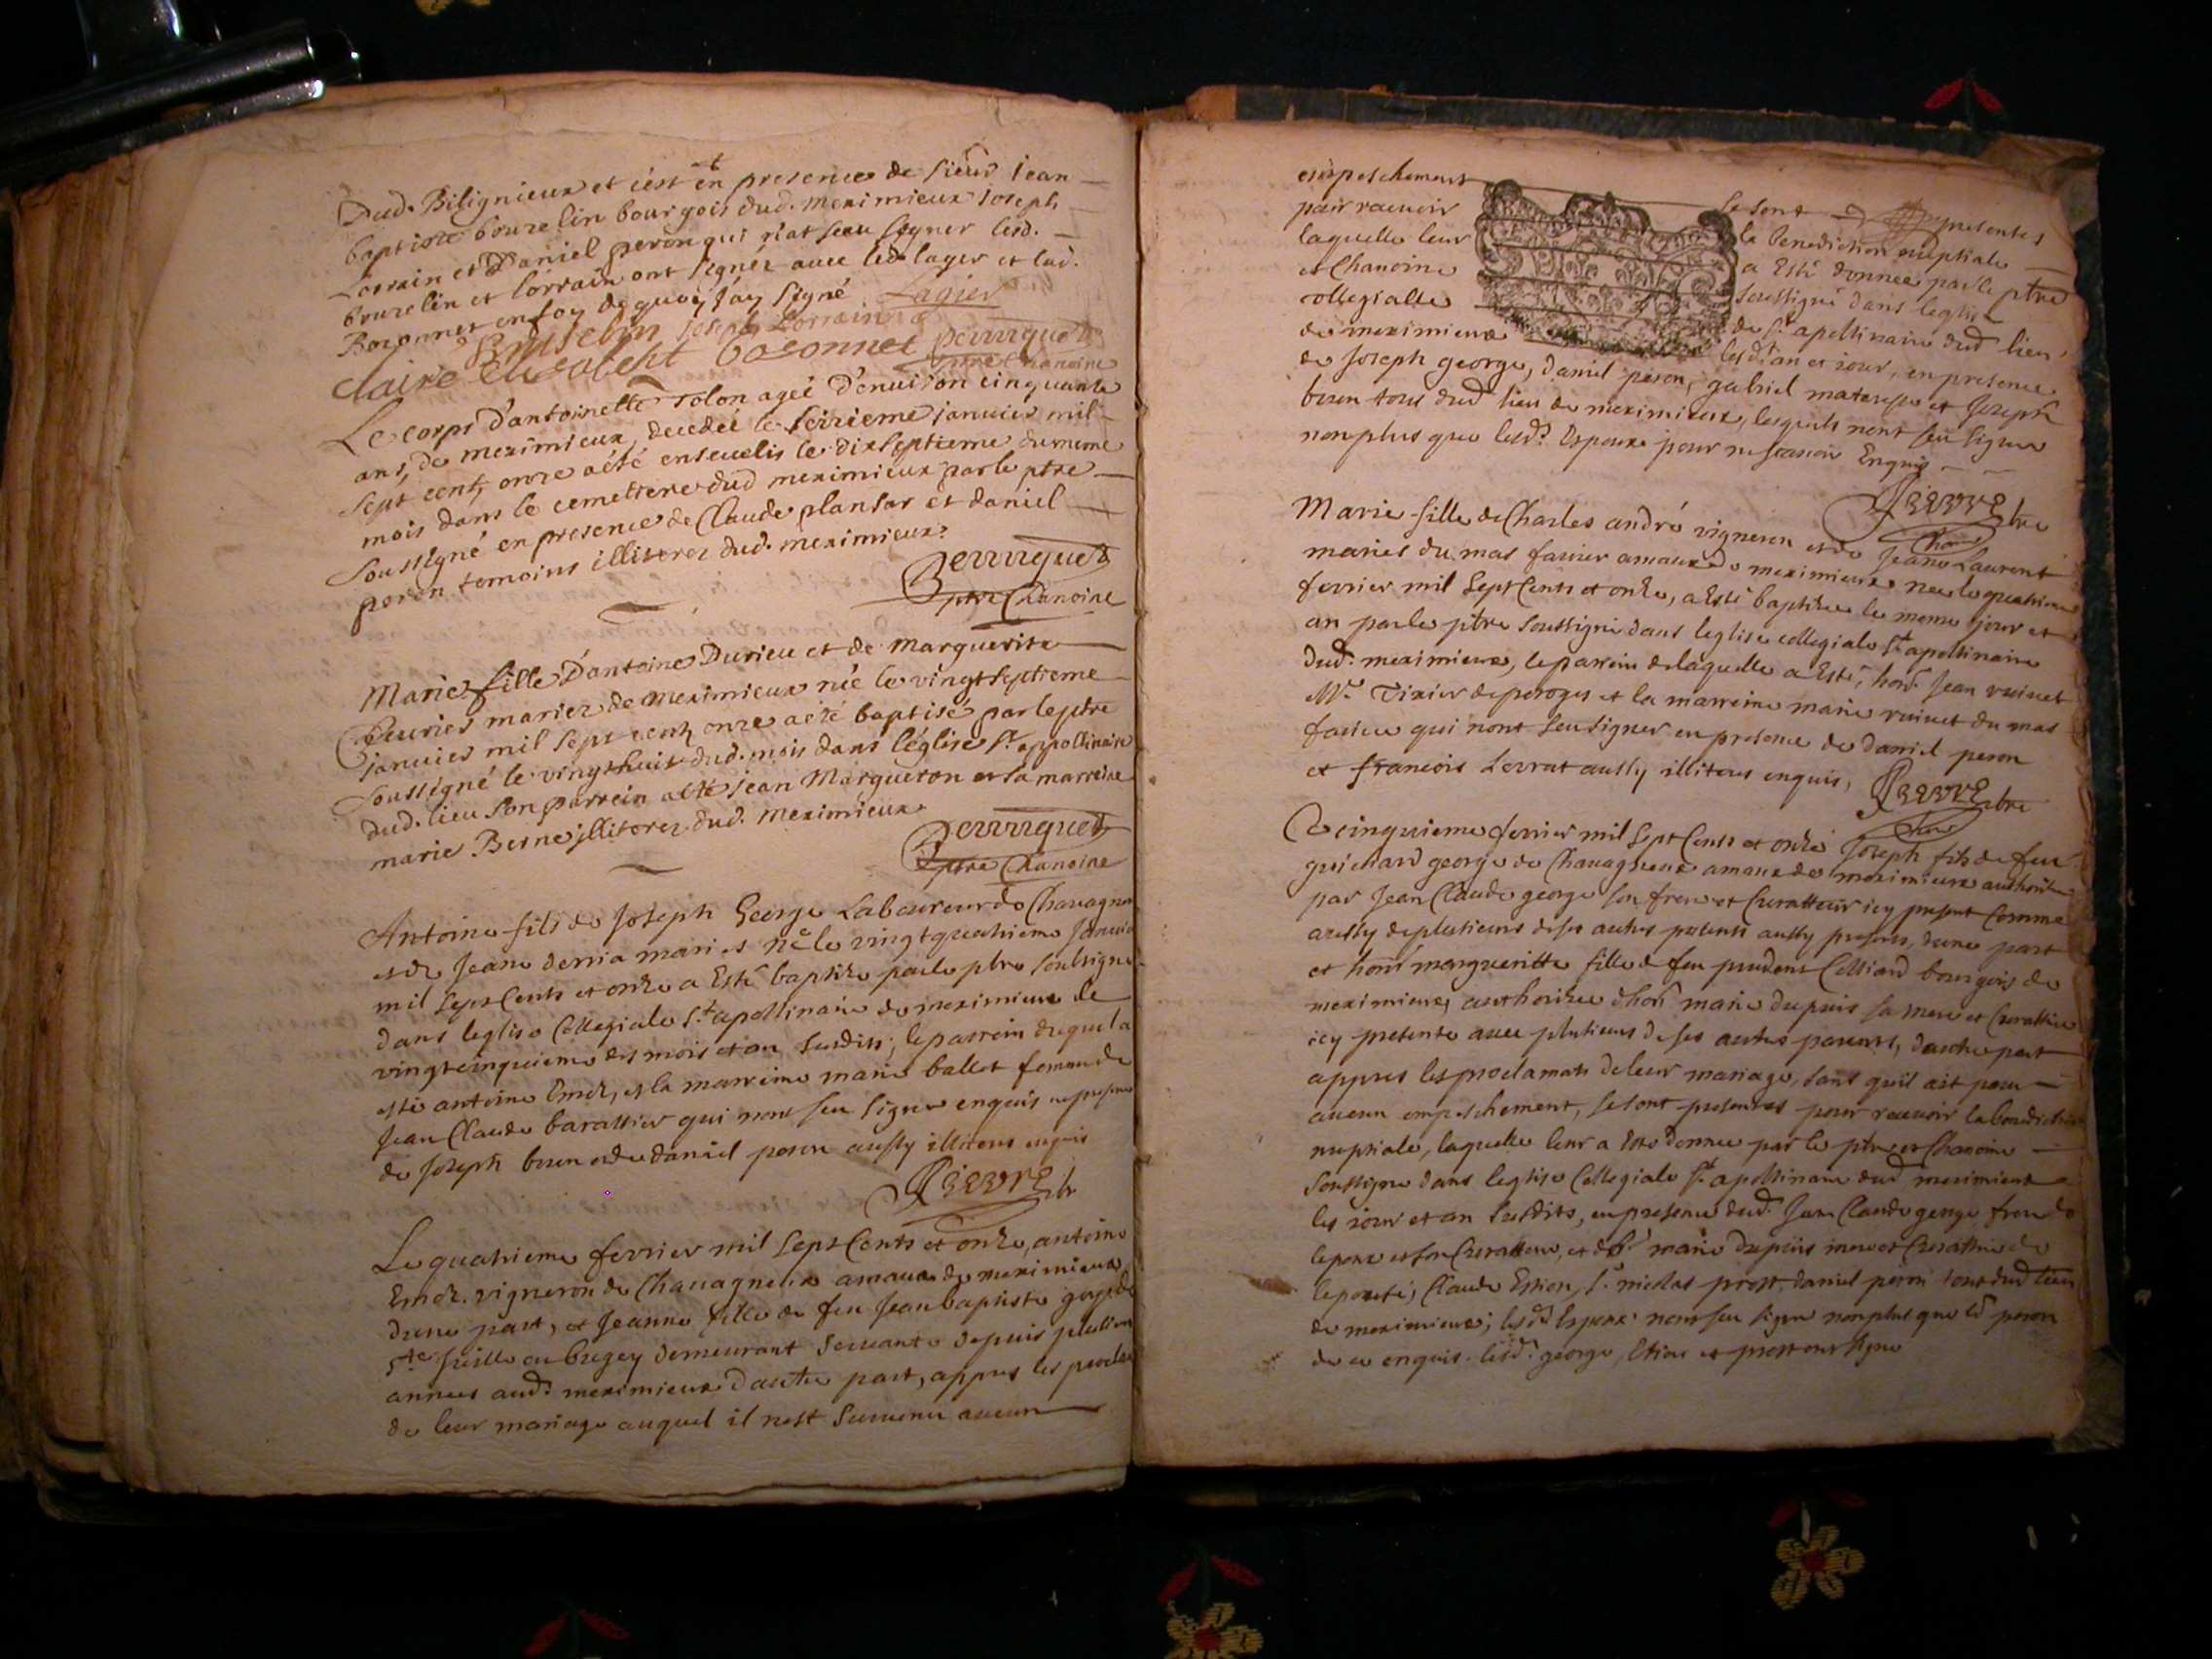 Dud. Bilignieux et c'est en presence de sieur Jean
baptiste bourselin bourgois dud. meximieux Joseph
Lorrain et Daniel peron qui n'at sceu signer lesd.
bourselin et lorrain ont signéz avec led lagier et lad.
Bozonnet en foy de quoy j'ay signé Lagier
Bourselin Joseph Lorrain
Claire Elisabeht bosonnet perruquet
ptre Chanoine
Le corps d'antoinette rolon ageé d'enuiron cinquante
ans, de meximieux, decedeé le seizieme januier mil
sept cent, onze a été enseuelis le dixseptieme du meme
mois dans le cemettere dud meximieux par le ptre
soussigné en presence de Claude plansar et daniel
peron temoins illiterez dud. meximieux.
perruquet
ptre Chanoine
Marie fille D'antoine Durieu et de Marguerite
fleuries mariez de Meximieux née le vingt septieme
januier mil sept cent, onze a été baptisé par le ptre
soussigné le vingt huit dud. mois dans l'église St. appollinaire
dud. lieu son parrein a été jean Margueron et la marreine
marie Berne illiterez dud. meximieux.
perruquet
ptre Chanoine
Antoine fils de Joseph George Laboureur de Chauagneu
et de Jeane derria maries né le vingtquatrieme Januier
mil Sept Cents et onze a Esté baptize par le pbre soubsigne
dans leglise Collegiale St. apollinaire de meximieux le
vingtcinquieme des mois et an susdits; le parrein duquel a
esté antoine , et la marreine marie ballet femme de
Jean Claude barattier qui nont seu signer enquis en presence
de Joseph bouen et de daniel peron aussy illiteres enquis
Fieure
Le quatrieme ferrier mil Sept Cents et onze, antoine
 vigneron de Chauagneux amaux de meximieux
dune part, et Jeanne fille de feu Jean baptiste
 en bugey demeurant seruante depuis plusieurs
annees aud. meximieux dautre part, appres les procla
de leur mariage auquel il nest suruenu aucun
empeschement se sont presentes
pour receuoir la benediction nuptiale
laquelle leur a Esté donnee par le ptre
et Chanoine soussigné dans leglise
collegialle de St apollinaire dud lieu
de meximieux lesd. an et iour, en presence
de Joseph george, daniel peron, gabriel et Joseph
bouen tous dud lieu de meximieux, lesquels nont seu signer
non plus que lesd. Espoux pour ne scauoir Enquis
Fieure ptre
Chan
Marie fille de Charles andré vigneron et de Jeane Laurent
maries du mas amaux de meximieux nee le quatrieme
ferrier mil Sept Cents et onze, a Esté baptizee le meme jour et
an par le ptre soussigné dans leglise collegiale St apollinaire
dud. meximieux, le parrein de laquelle a Esté, hon. Jean
 Tixier de peroges et la marreine marie du mas
 qui nont seu signer en presence de daniel peron
et francois aussy illiteres enquis,
Fieure ptre
Chan
Le cinquieme ferrier mil Sept Cents et onze Joseph fils de feu
guichard george de Chauagneux amaux de meximieux authorize
par Jean Claude george son frere et Curatteur icy present Comme
aussy de plusieurs de ses autres parents aussy presents, dune part
et hon. margueritte fille de feu prudent Colliard bourgois de
meximieux, authorizee dhon. marie dupuis sa mere et Curattrice
icy presente auec plusieurs de ses autres parents, dautre part
appres les proclamats de leur mariage, sans quil ait paru
aucun empeschement, se sont presentes pour receuoir la benediction
nuptiale, laquelle leur a Esté donnee par le ptre et Chanoine
soussigné dans leglise Collegiale St apollinaire dud meximieux
les iour et an susdits, en presence dud. Jean Claude george frere de
lepoux et son Curatteur, et marie dupuis mere et Curattrice de
lepouse; Claude Estion, Sr nicolas prost, daniel peron tous dud lieu
de meximieux; lesd. Espoux nont seu signer non plus que led peron
de ce enquis. lesd. george, Etion et prost ont signe